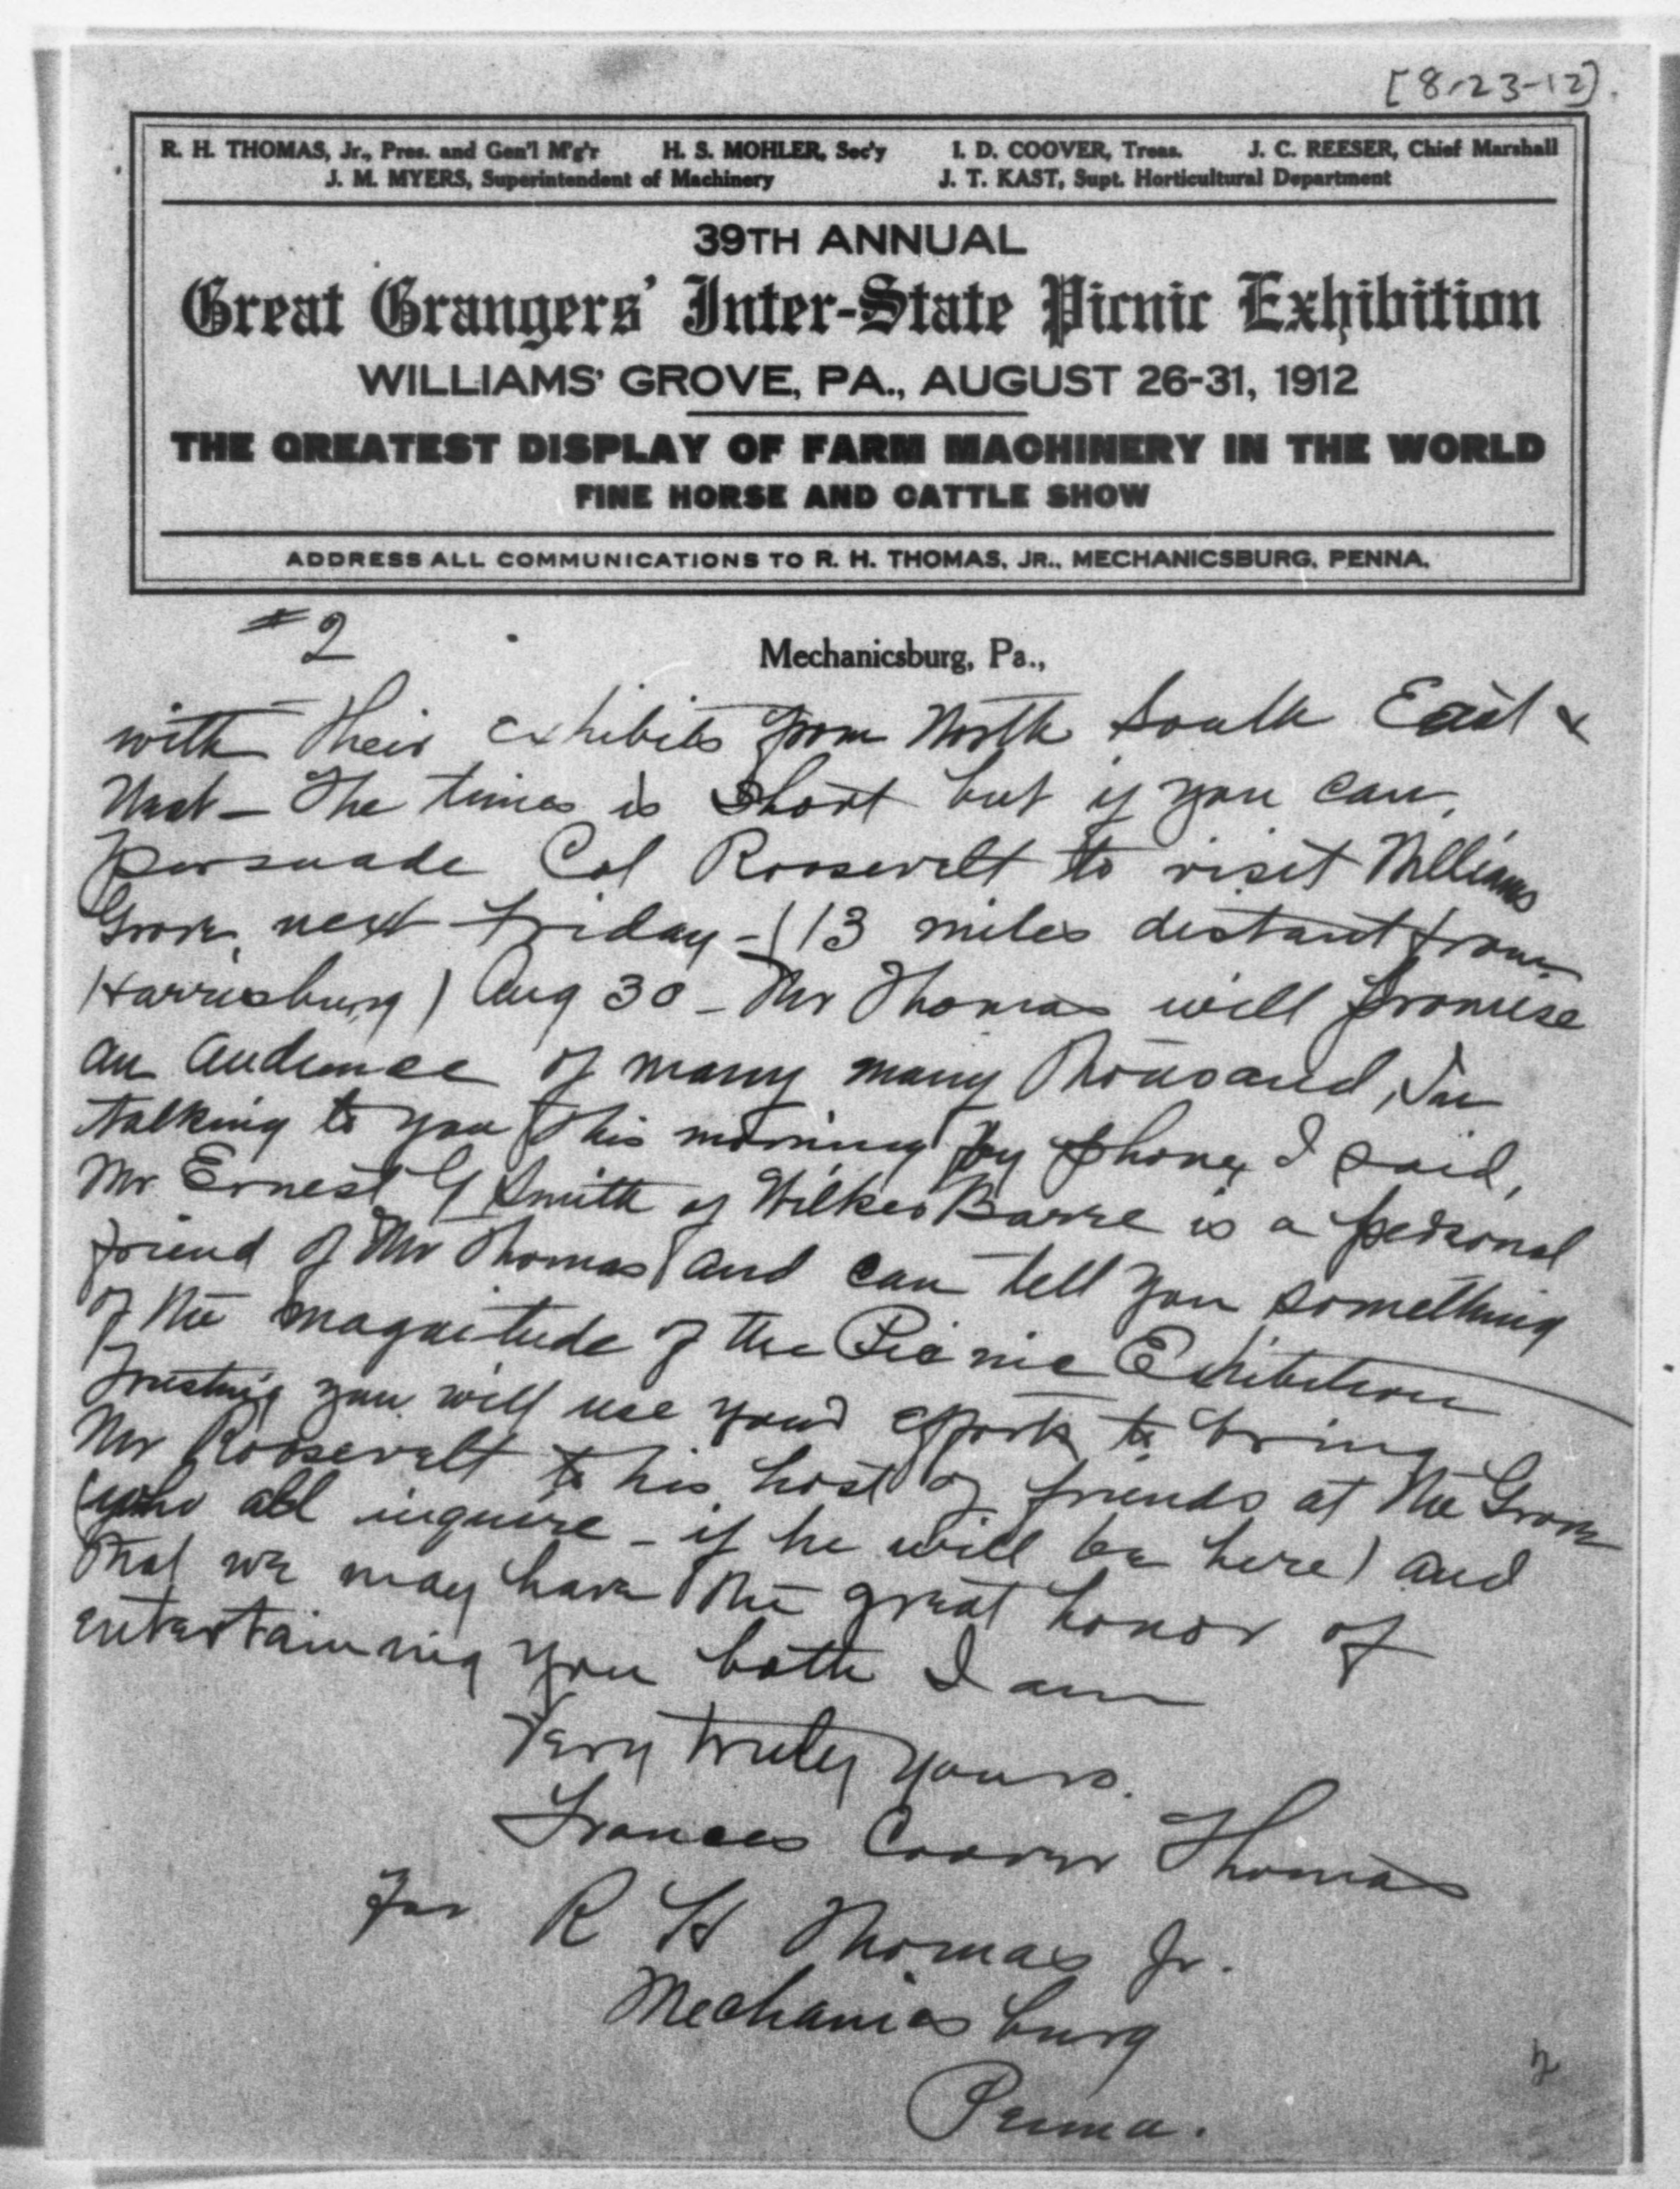 [8-23-12].
R. H. THOMAS, Jr., Pres. and Gen'l M'g'r H. S. MOHLER, Sec'y I. D. COOVER, Treas. J. C. REESER, Chief Marshall
J. M. MYERS, Superintendent of Machinery J. T. KAST, Supt. Horticultural Department
39TH ANNUAL
Great Grangers' Inter-State Picnic Exhibition
WILLIAMS' GROVE, PA., AUGUST 26-31, 1912
THE GREATEST DISPLAY OF FARM MACHINERY IN THE WORLD
FINE HORSE AND CATTLE SHOW
ADDRESS ALL COMMUNICATIONS TO R. H. THOMAS, JR., MECHANICSBURG, PENNA.
#2
Mechanicsburg, Pa.,
with their exhibits from North South East &
West – The times is short but if you can,
persuade Col Roosevelt to visit Williams
Grove, next Friday – (13 miles distant from
Harrisburg) Aug 30 – Mr Thomas will promise
an audience of many many thousand, In
talking to you this morning by phone, I said,
Mr Ernest G Smith of Wilkes Barre is a personal
friend of Mr Thomas and can tell you something
of the magnitude of the Picnic Exhibition
Trusting you will use your efforts to bring
Mr Roosevelt to his host of friends at the Grove
(who all inquire – if he will be here) and
that we may have the great honor of
entertaining you both I am
Very truly yours.
Frances Coover Thomas
For R H Thomas Jr.
Mechanicsburg
Penna.
2